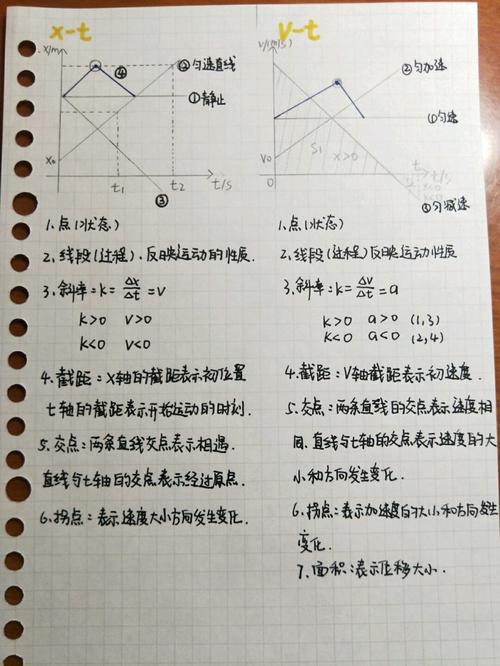 x-t
x/m
④
②匀速直线
①静止
x₀
t₁
t₂
t/s
③
1、点(状态)
2、线段(过程)、反映运动的性质.
3、斜率:k=Δx/Δt=v
k>0 v>0
k<0 v<0
4、截距:x轴的截距表示初位置
t轴的截距表示开始运动的时刻.
5、交点:两条直线交点表示相遇.
直线与t轴的交点表示经过原点.
6、拐点:表示速度大小方向发生变化.
v-t
v/(m/s)
②匀加速
①匀速
v₀
S₁
x>0
0
t
t/s
x<0
③匀减速
1、点(状态)
2、线段(过程)反映运动性质
3、斜率:k=Δv/Δt=a
k>0 a>0 (1,3)
k<0 a<0 (2,4)
4、截距:v轴截距表示初速度.
5、交点:两条直线的交点表示速度相
同.直线与t轴的交点表示速度的大
小和方向发生变化.
6、拐点:表示加速度的大小和方向发生
变化.
7、面积:表示位移大小.